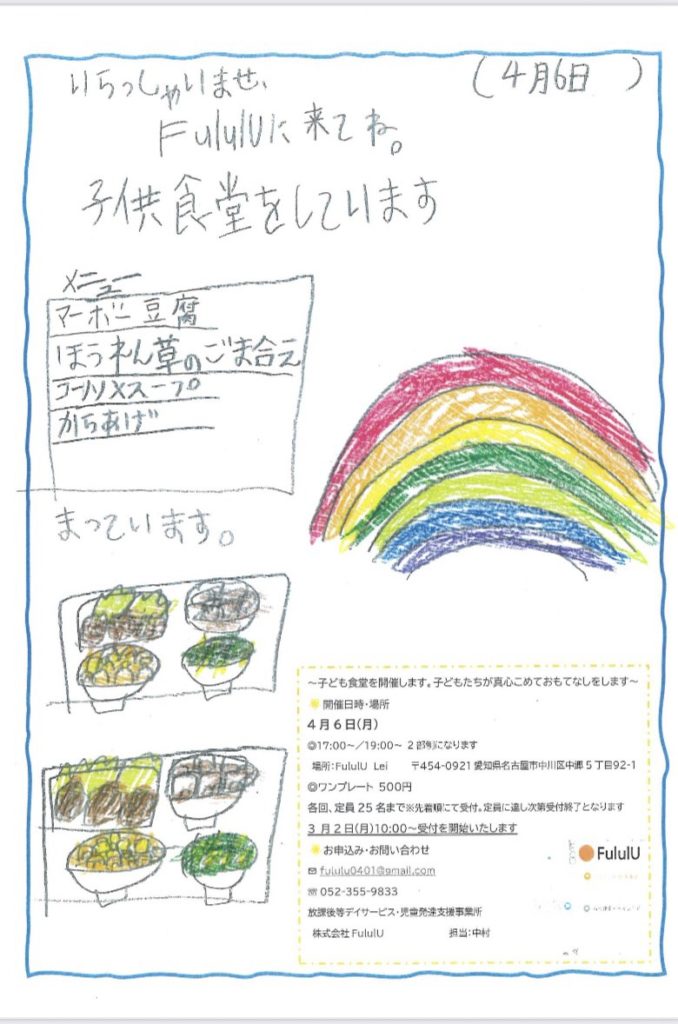 いらっしゃいませ、
(4月6日 )
FululUに来てね。
子供食堂をしています
メニュー
マーボー豆腐
ほうれん草のごま合え
コーンスープ
からあげ
まっています。
～子ども食堂を開催します。子どもたちが真心こめておもてなしをします～
開催日時・場所
4月6日(月)
◎17:00～/19:00～ 2部制になります
場所:FululU Lei 〒454-0921 愛知県名古屋市中川区中郷5丁目92-1
◎ワンプレート 500円
各回、定員25名まで※先着順にて受付。定員に達し次第受付終了となります
3月2日(月)10:00～受付を開始いたします
お申込み・お問い合わせ
✉ fululu0401@gmail.com
☏052-355-9833
放課後等デイサービス・児童発達支援事業所
株式会社FululU 担当:中村
FululU